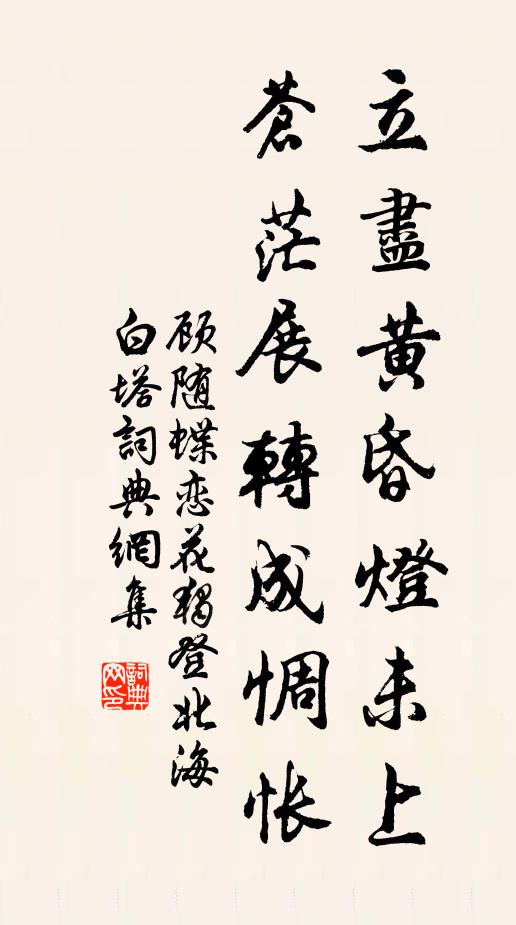 立盡黄昏燈未上
蒼茫展轉成惆怅
顾随蝶恋花独登北海
白塔詞典網集
詞典網印